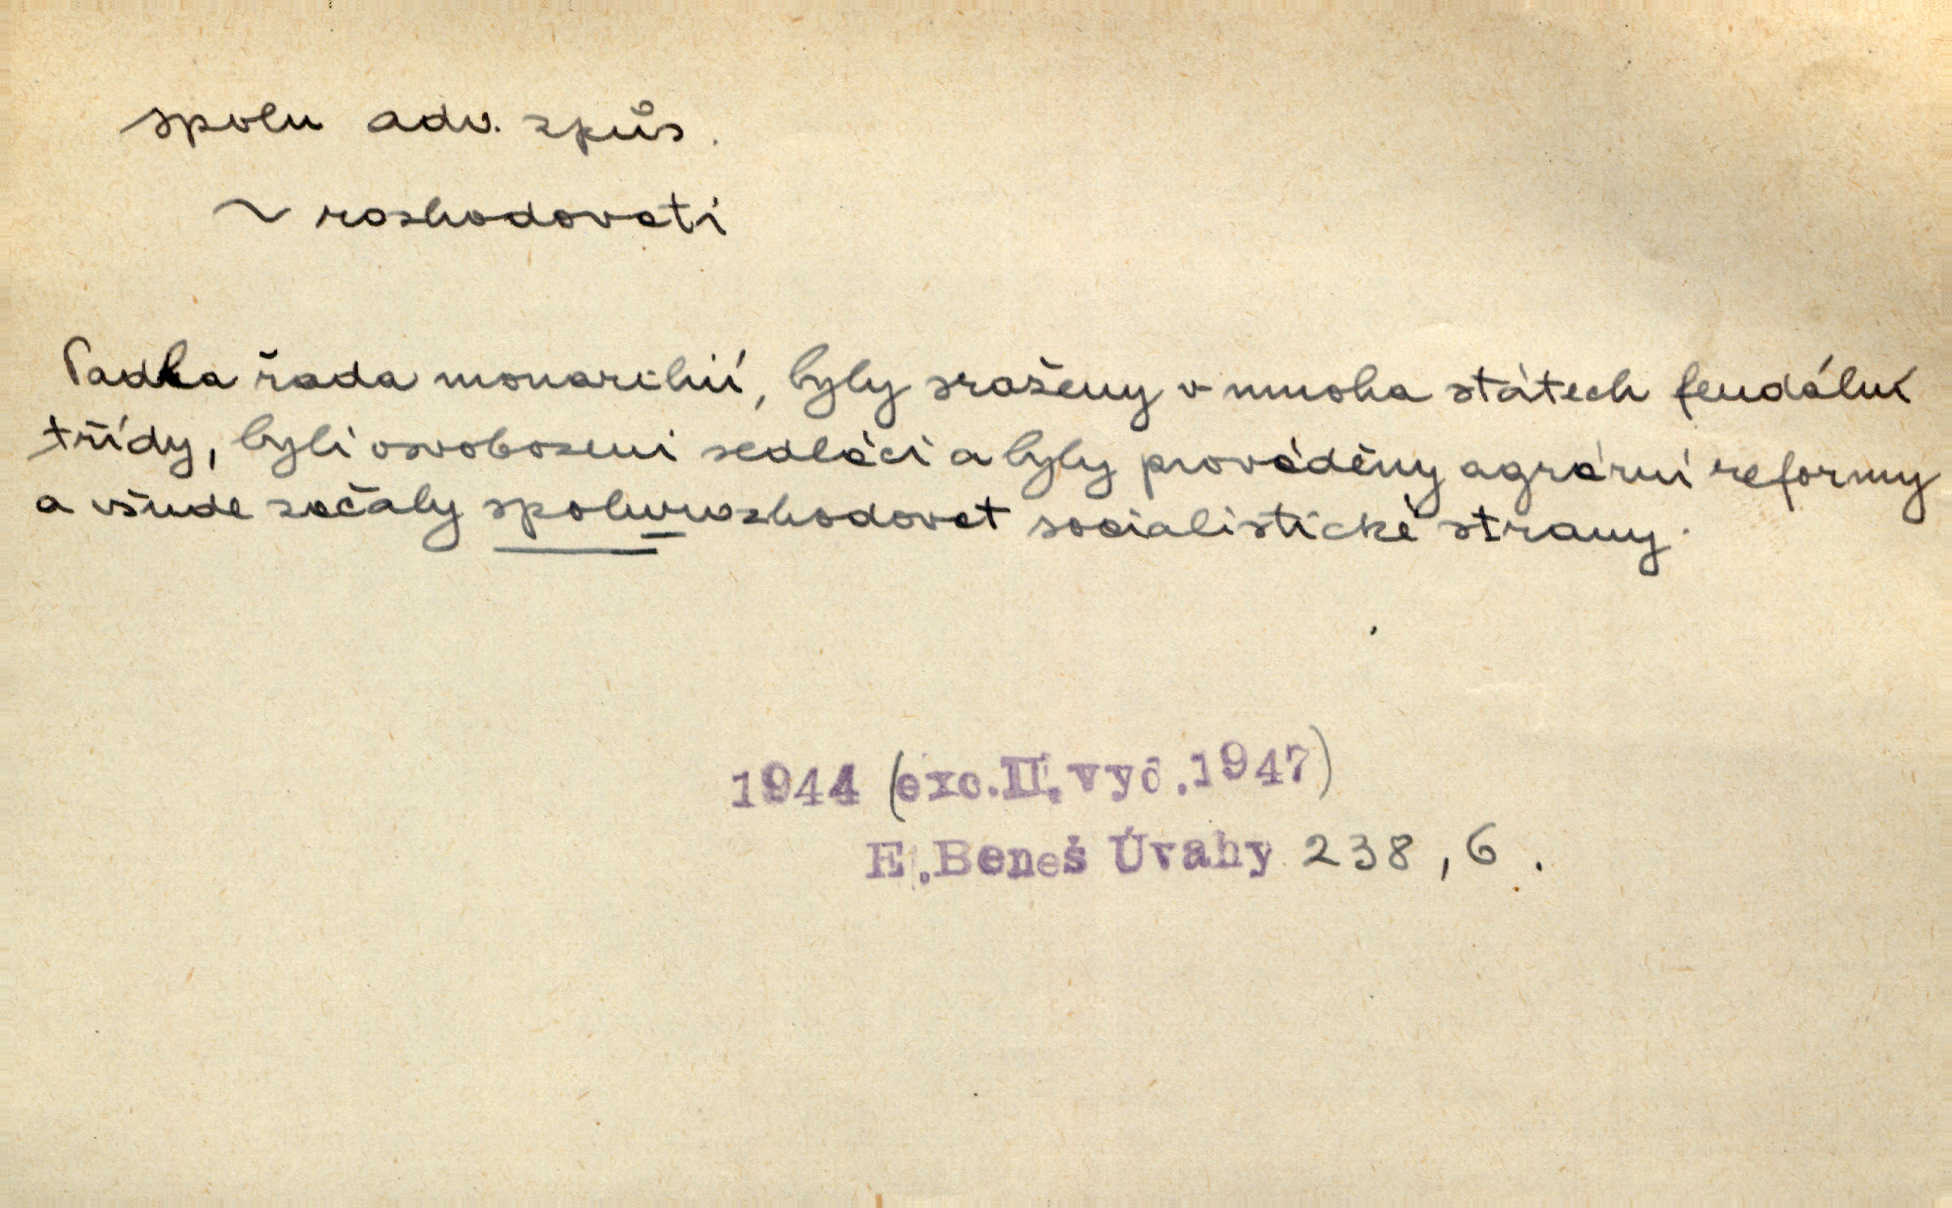 spolu adv. způs.
~ rozhodovati
Padla řada monarchií, byly sraženy v mnoha státech feudální
třídy, byli osvobozeni sedláci a byly prováděny agrární reformy
a všude začaly spolurozhodovat socialistické strany.
1944 (exc.II.vyd.1947)
E.Beneš Úvahy 238, 6.